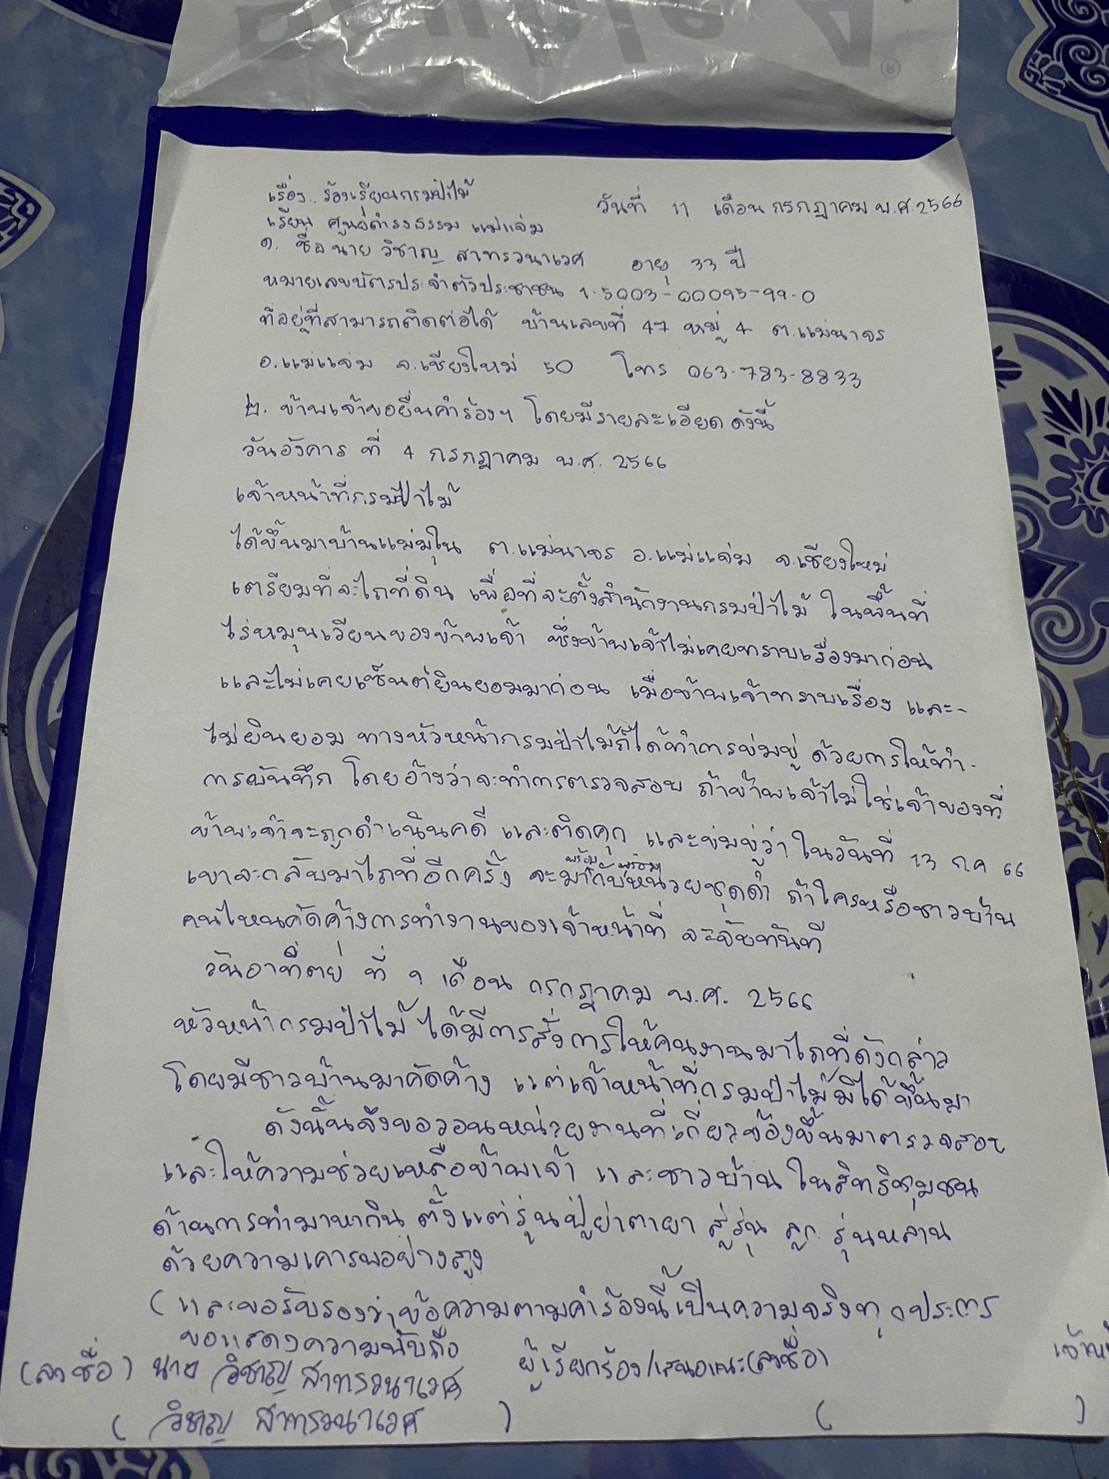 Ample A ®
เรื่อง.. ร้องเรียนกรมป่าไม้
วันที่ 11 เดือน กรกฎาคม พ.ศ. 2566
เรียน ศูนย์ดำรงธรรม แม่แจ่ม
๑. ชื่อ นาย วิชาญ สาทรวนาเวศ อายุ 33 ปี
หมายเลขบัตรประจำตัวประชาชน 1-5003-00095-99-0
ที่อยู่ที่สามารถติดต่อได้ บ้านเลขที่ 47 หมู่ 4 ต.แม่นาจร
อ.แม่แจ่ม จ.เชียงใหม่ 50 โทร 063-783-8833
๒. ข้าพเจ้าขอยื่นคำร้องฯ โดยมีรายละเอียด ดังนี้
วันอังคาร ที่ 4 กรกฎาคม พ.ศ. 2566
เจ้าหน้าที่กรมป่าไม้
ได้ขึ้นมาบ้านแม่มุใน ต.แม่นาจร อ.แม่แจ่ม จ.เชียงใหม่
เตรียมที่จะไถที่ดิน เพื่อที่จะตั้งสำนักงานกรมป่าไม้ ในพื้นที่
ไร่หมุนเวียนของข้าพเจ้า ซึ่งข้าพเจ้าไม่เคยทราบเรื่องมาก่อน
และไม่เคยเซ็นต์ยินยอมมาก่อน เมื่อข้าพเจ้าทราบเรื่อง และ-
ไม่ยินยอม ทางหัวหน้ากรมป่าไม้ก็ได้ทำการข่มขู่ ด้วยการให้ทำ-
การบันทึก โดยอ้างว่าจะทำการตรวจสอบ ถ้าข้าพเจ้าไม่ใช่เจ้าของที่
ข้าพเจ้าจะถูกดำเนินคดี และติดคุก และข่มขู่ว่า ในวันที่ 13 ก.ค 66
เขาจะกลับมาไถที่อีกครั้ง จะมาพร้อมกับหน่วยชุดดำ ถ้าใครหรือชาวบ้าน
คนไหนคัดค้างการทำงานของเจ้าหน้าที่ จะจับทันที
วันอาทิตย์ ที่ 9 เดือน กรกฎาคม พ.ศ. 2566
หัวหน้ากรมป่าไม้ ได้มีการสั่งการให้คนงานมาไถที่ดังกล่าว
โดยมีชาวบ้านมาคัดค้าง แต่เจ้าหน้าที่กรมป่าไม้มิได้ขึ้นมา
ดังนั้นจึงขอวอนหน่วยงานที่เกี่ยวข้องขึ้นมาตรวจสอบ
และให้ความช่วยเหลือข้าพเจ้า และชาวบ้าน ในสิทธิชุมชน
ด้านการทำมาหากิน ตั้งแต่รุ่นปู่ย่าตายา สู่รุ่น ลูก รุ่นหลาน
ด้วยความเคารพอย่างสูง
(และขอรับรองว่าข้อความตามคำร้องนี้เป็นความจริงทุกประการ
ขอแสดงความนับถือ
(ลงชื่อ) นาย วิชาญ สาทรวนาเวศ ผู้เรียกร้อง/เสนอแนะ(ลงชื่อ)
( วิชาญ สาทรวนาเวศ ) ( )